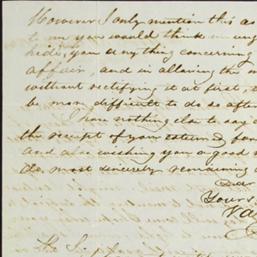 However I only mention this as
to you would think in
hide, you anything concerning
affair, and in allowing the
without rectifying it at first, t
be more difficult to do so after
I have nothing else to say
the receipt of your esteemed fav
and also wishing you a good
do, most sincerely remaining
Dear
Yours
Val
The